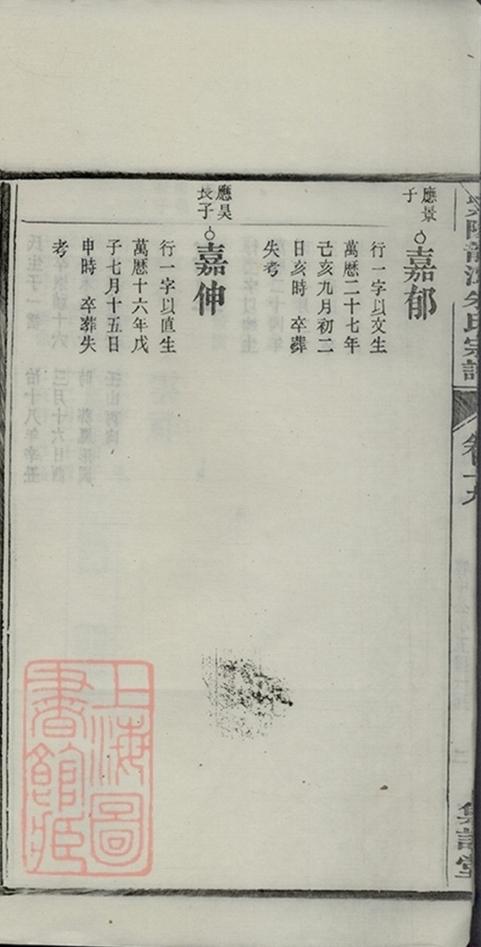 陽龍江朱氏宗譜
卷十九
集詩堂
應景
子
嘉郁
行一字以文生
萬歷二十七年
己亥九月初二
日亥時 卒葬
失考
應昊
長子
嘉伸
行一字以直生
萬歷十六年戊
子七月十五日
申時 卒葬失
考
上海圖
書館藏